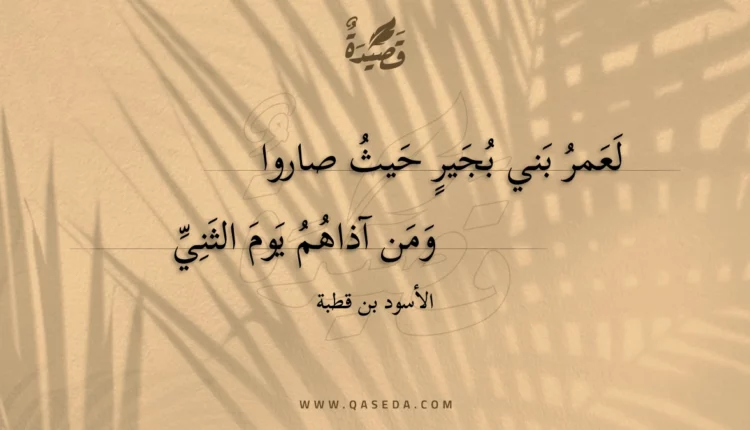 قَصِيدَةٌ
لَعَمرُ بَني بُجَيرٍ حَيثُ صاروا
وَمَن آذاهُمُ يَومَ الثَنِيِّ
الأسود بن قطبة
WWW.QASEDA.COM